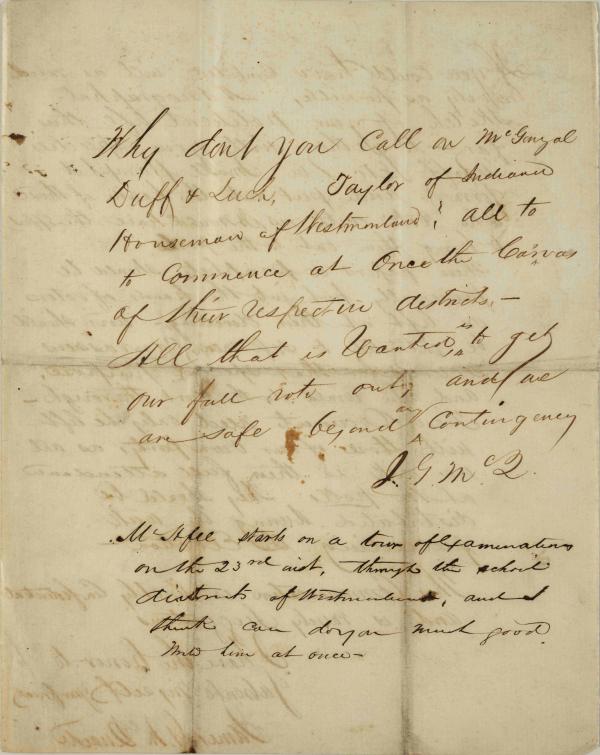 Why dont you Call on McGonigal
Duff & Luca, Taylor of Indiana
Houseman of Westmorland; all to
to Commence at Once the Canvas
of their respective districts.—
All that is Wanted, is to get
our full vote out, and we
are safe beyond any Contingency
J. G. McQ.
McAfee starts on a tour of Examinations
on the 23rd inst, through the school
districts of Westmorland, and I
think can do you much good.
Write him at once—